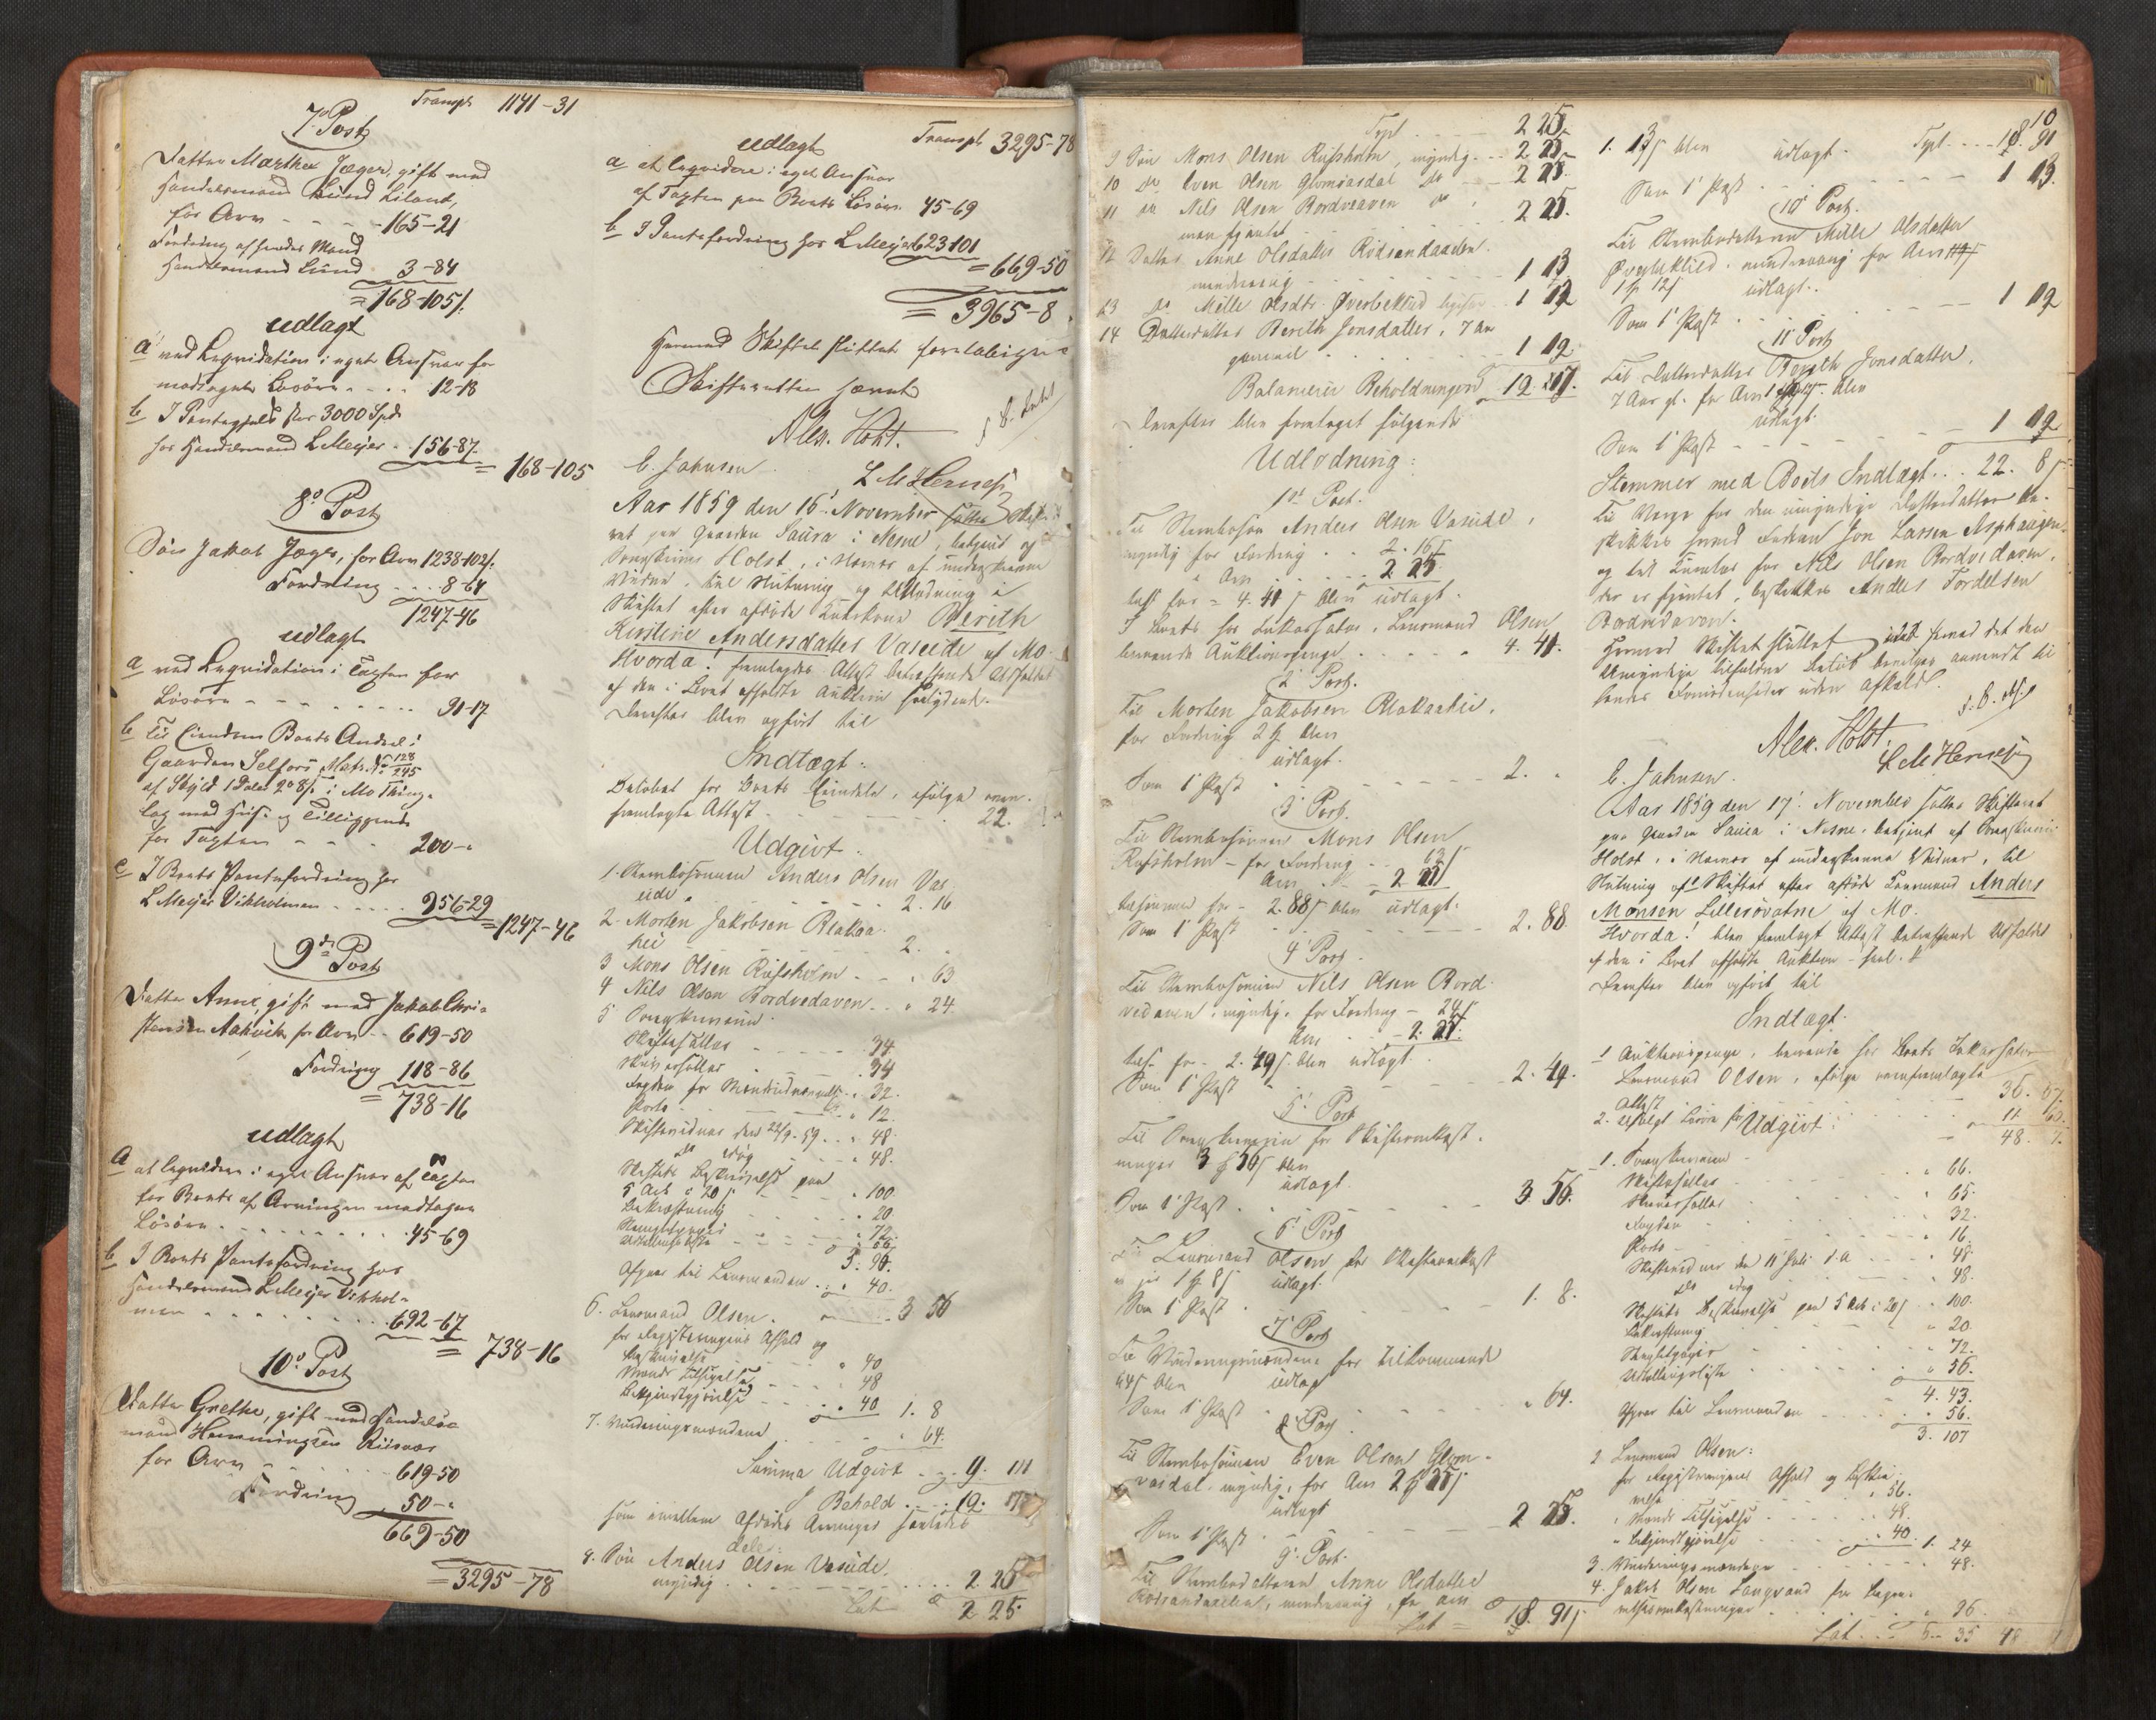 Transpt 1141-31
7. Post
Datter Marthea Jæger, gift med
Handelsmand Lund Liland,
for Arv - - - 165-21
Fordring af hendes Mand
Handelsmand Lund 3-84
= 168-105/.
udlagt
a ved Liqvidation i eget Ansvar for
modtagne Løsøre . . . . 12-18
b I Pantegjeld stor 3000 Spd
hos Handelsmand L Meijer - 156-87.
= 168-105
8de Post
Søn Jakob Jæger, for Arv 1238-102/.
Fordring . . . 8-64
1247-46
udlagt
a ved Liqvidation i Taxten for
Løsøre - - - - - - - 91-17
b Til Eiendom Boets Andeel i
Gaarden Selfors, Matr. No 128/245
af Skyld 1 Daler 2 o 8/. i Mo Thing-
lag med Huse og Tilliggende
for Taxten - - - 200-"
c I Boets Pantefordring hos
L Meijer Vikholmen - - - - 956-29
= 1247-46
9de Post
Datter Anne, gift med Jakob Chri-
stensen Aakvik for Arv - - 619-50
Fordring 118-86
= 738-16
udlagt
a at liqvidere i eget Ansvar af Taxten
for Boets af Arvingen modtagen
Løsøre - - - - - - - 45-69
b I Boets Pantefordring hos
Handelsmand L Meijer Vikhol-
men - - - - - - - 692-67
= 738-16
10de Post
Datter Grethe, gift med Handels-
mand Hemmingsen Riisvær
for Arv - - - - - - 619-50
Fordring 50-"
669-50
= 3295-78
Transpt 3295-78
udlagt
a at liqvidere i eget Ansvar
af Taxten paa Boets Løsøre 45-69
b I Pantefordring hos L Meijer 623-101
= 669-50
= 3965-8
Hermed Skiftet sluttet foreløbigen
Skifteretten hævet
Alex. Holst.
C. Jahnsen L M Herness
Aar 1859 den 16' November sattes Skifte-
ret paa Gaarden Saura i Nesne, betjent af
Sorenskriver Holst, i Nærvær af undertegnede
Vidner, til Slutning og Udlodning i
Skiftet efter afdøde Enkekone Berith
Kirstine Andersdatter Vaseide af Mo.
Hvorda! fremlagdes Attest betræffende Udfaldet
af den i Boet afholdte Auktion saalydende.
Derefter blev opført til
Indtægt:
Beløbet for Boets Eiendele, ifølge oven-
fremlagte Attest - - - - 22.
Udgivt:
1. Stervbosønnen Anders Olsen Vas-
eide - - - - - 2. 16
2. Morten Jakobsen Blakaa-
hei - - - - - 2. "
3 Mons Olsen Rufsholm - - " 63
4 Nils Olsen Bordvedaven - - " 24.
5 Sorenskriveren
Skiftesallær - - - - - 34
Skriversallær - - - - - 34
Fogden for - - 32.
Porto - - - - - " 12.
Skiftevidner den 22/9. 59 - - " 48.
do idag - - - - " 48.
Skiftets Beskrivelse paa
5 Ark à 20 / - - - " 100.
Bekræftning - - - - - " 20
Stempletpapir - - - - - " 72.
Udlodningsliste - - - - - " 56
5. 90.
Afgaar til Lensmanden - - " 40.
3 56
6. Lensmand Olsen.
for Registreringens Afhold og
Beskrivelse - - - - " 40
Mænds Tilsigelse - - - " 48
Bekjendtgjørelse - - - " 40 1. 8
7. Vurderingsmændene - - - " 64.
Summa Udgivt - - 9. 111
Behold - - 12.
som imellem Afdødes Arvinger saaledes
deles:
8. Søn Anders Olsen Vaseide,
myndig - - - - - 2. 25
Lat 2 25.
Tpt - - 2 25.
9 Søn Mons Olsen Rufsholm, myndig - - 2 25.
10 do Even Olsen Glomvasdal do - - 2 25.
11 do Nils Olsen Bordvedaven do
men sjønlet - - - 2 25.
12 Datter Anne Olsdatter Rødsandaadelen
mindreaarig - - - - - 1 13
13 do Mille Olsdtr. Øverbeklied ligesaa - - 1 12
14 Datterdatter Berith Jonsdatter, 7 Aar
gammel - - - - - 1 12
Balancerer Beholdningen 12. 17.
Derefter blev foretaget følgende
Udlodning:
1ste Post.
Til Stervbosøn Anders Olsen Vaseide,
myndig for Fordring . . 2. 16/
" Arv . . . . 2 25
tils. for = 4. 41 / blev udlagt.
I Boets hos Inkassator, Lensmand Olsen
beroende Auktionspenge - - - - 4. 41.
2' Post.
Til Morten Jakobsen Blakaahei,
for Fordring 2 § blev
udlagt.
Som 1' Post - - - - 2. "
3' Post.
Til Stervbosønnen Mons Olsen
Rufsholm - for Fordring - - 63/
Arv - - 2 25/
tilsammen for - 2. 88/ blev udlagt.
Som 1' Post - - - - 2. 88.
4' Post.
Til Stervbosønnen Nils Olsen Bord-
vedaven, myndig, for Fordring - 24/
Arv - - 2. 25.
tils. for - 2. 49/ blev udlagt.
Som 1' Post - - - - 2. 49.
5' Post
Til Sorenskriveren for Skifteomkost-
ninger 3 § 56/ blev
udlagt.
Som 1' Post - - - - 3. 56.
6' Post
Til Lensmand Olsen for Skifteomkost
1 § 8/ udlagt.
Som 1' Post - - - - 1. 8.
7' Post
Til Vurderingsmændene for Tilkommende
64/ blev udlagt
Som 1' Post - - - - " 64.
8' Post
Til Stervbosønnen Even Olsen Glom-
vasdal, myndig, for Arv 2 § 25/
udlagt
Som 1' Post - - - - 2 25.
9' Post.
Til Stervbodatteren Anne Olsdatter
Rødsandaadelen, mindreaarig, for Arv
Lat = 18. 91/
10
1. 13/ blev udlagt. Tpt - - - 18. 91
Som 1' Post - - - - 1 13.
10' Post.
Til Stervbodatteren Mille Olsdatter
Øverbeklied, mindreaarig for Arv
1 § 12/ udlagt.
Som 1' Post - - - - 1 12
11 Post
Til Datterdatter Berith Jonsdatter,
7 Aar gl. for Arv blev
udlagt.
Som 1' Post - - - - 1 12
Stemmer med Boets Indtægt . . . 22. 8/
Til Værge for den umyndige Datterdatter be-
skikkes hendes Fader Jon Larsen Asphaugen
og til Kurator for Nils Olsen Bordvedaven,
der er sjønlet, beskikkes Anders Tordelsen
Bordvedaven.
Hermed Skiftet sluttet idet hermed det den
Umyndige tilfaldne Beløb bevilges anvendt til
hendes Fornødenheder uden Afkald.
Alex. Holst.
C. Jahnsen. L M Herness
Aar 1859 den 17' November sattes Skifteret
paa Gaarden Saura i Nesne, betjent af Sorenskriver
Holst, i Nærvær af undertegnede Vidner, til
Slutning af Skiftet efter afdøde Læremand Anders
Monsen Lillesøvatne af Mo.
Hvorda! blev fremlagt Attest betræffende Udfaldet
af den i Boet afholdte Auktion - saal.
Derefter blev opført til
Indtægt:
1 Auktionspenge, beroende hos Boets Inkassator
Lensmand Olsen, ifølge ovenfremlagte
Attest - - - - 36. 67.
2. Udfulgt Løsøre for - - - 11
48. 7.
Udgivt:
1. Sorenskriveren -
Skiftesallær - - - - " 66.
Skriversallær - - - - " 65.
Fogden - - - - " 32.
Porto - - - - " 16.
Skiftevidner den 11' Juli d. A - - " 48
do idag - - - - " 48.
Skiftets Beskrivelse paa 5 Ark à 20/ - - " 100.
Bekræftning - - - - " 20
Stempletpapir - - - - " 72.
Udlodningsliste - - - - " 56.
4. 43.
Afgaar til Lensmanden - - - " 56.
3. 107
2 Lensmand Olsen:
for Registreringens Afhold og Beskri-
velse - - - - " 56.
" Mænds Tilsigelse - - - " 48.
" Bekjendtgjørelse - - - " 40. 1. 24
3. Vurderingsmændene - - - " 48.
4. Jakob Olsen Langvand for Begra-
velsesomkostninger - - - " 96.
Lat - - 5 - 35 48